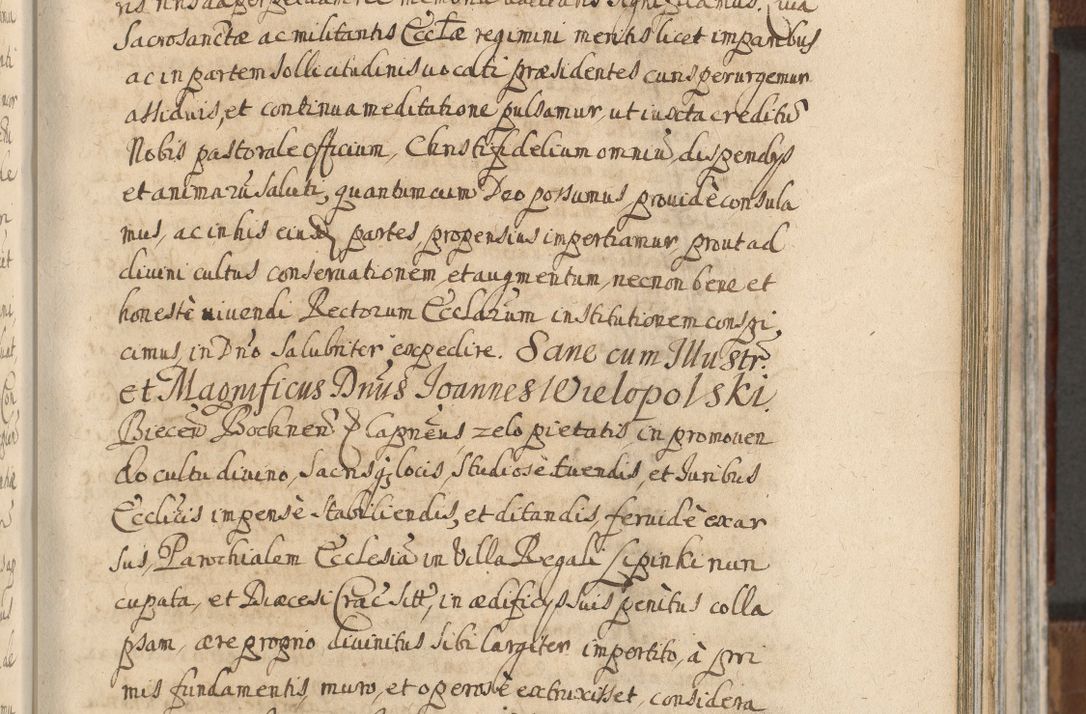 Sacrosanctæ ac militantis Eccłæ regimini meritis licet imparibus
ac in partem sollicitudinis uocati præsidentes curis perurgemur
assiduis, et continua meditatione pulsamur, ut iuxta creditũ
Nobis pastorale officium, Christi fidelium omniũ dispendys
et animarũ saluti, quantum cum Deo possumus prouidè consula
mus, ac in his eiusd partes propensius impertiamur prout ad
diuini cultus conseruationem, et augmentum, necnon bene et
honestè uiuendi Rectorum Ecclarum institutionem conspi,
cimus, in Dno salubriter expedire. Sane cum Illustr.
et Magnificus Dnus Ioannes Wielopolski.
Biecen Bochnen Capneus zelo pietatis, in promouen
do cultu diuino, sacrisq, locis, studiosè tuendis, et Iuribus
Eccliis impensè stabiliendis, et ditandis, feruidè exar
sus, Parochialem Ecclesiã in Villa Regali Lipinki nun
cupata, et Diæcesi Crac sitt, in ædificys suis penitus colla
psam, ære proprio diuinitus sibi largiter impertito, à pri
mis fundamentis, muro, et operosè extruxisset, considera